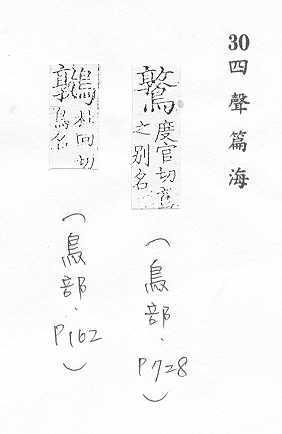 30四聲篇海
鷻度官切
之別名
(鳥部.P728)
杜回切
鳥名
(鳥部.P162)